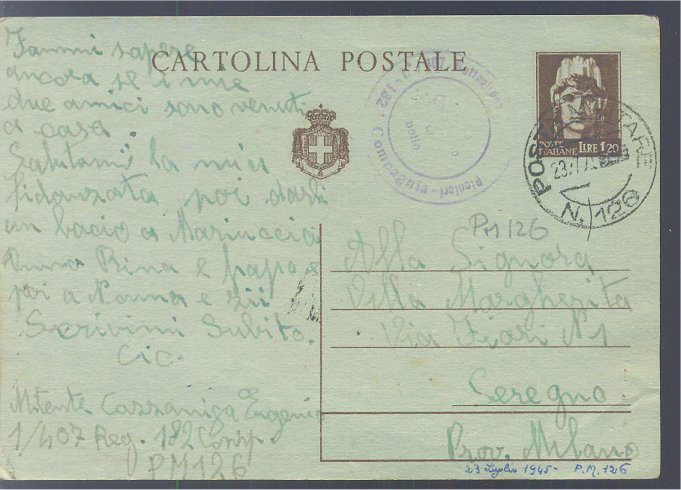 Fammi sapere
ancora se i miei
due amici sono venuti
a casa.
Salutami la mia
fidanzata poi darli
un bacio a Mariuccia
Rina e papo e
poi a Nonna e zii
Scrivimi Subito.
Cic.
Mitente Cazzaniga Eugenio
1/407 Reg. 182 Comp.
PM 126
CARTOLINA POSTALE
POSTE ITALIANE LIRE 1,20
POSTA MILITARE
23.7.
N. 126
182
Pionieri
bollo
PM 126
Alla Signora
Villa Margherita
Via Fiori N 1
Seregno
Prov. Milano
23 Luglio 1945 - P.M. 126